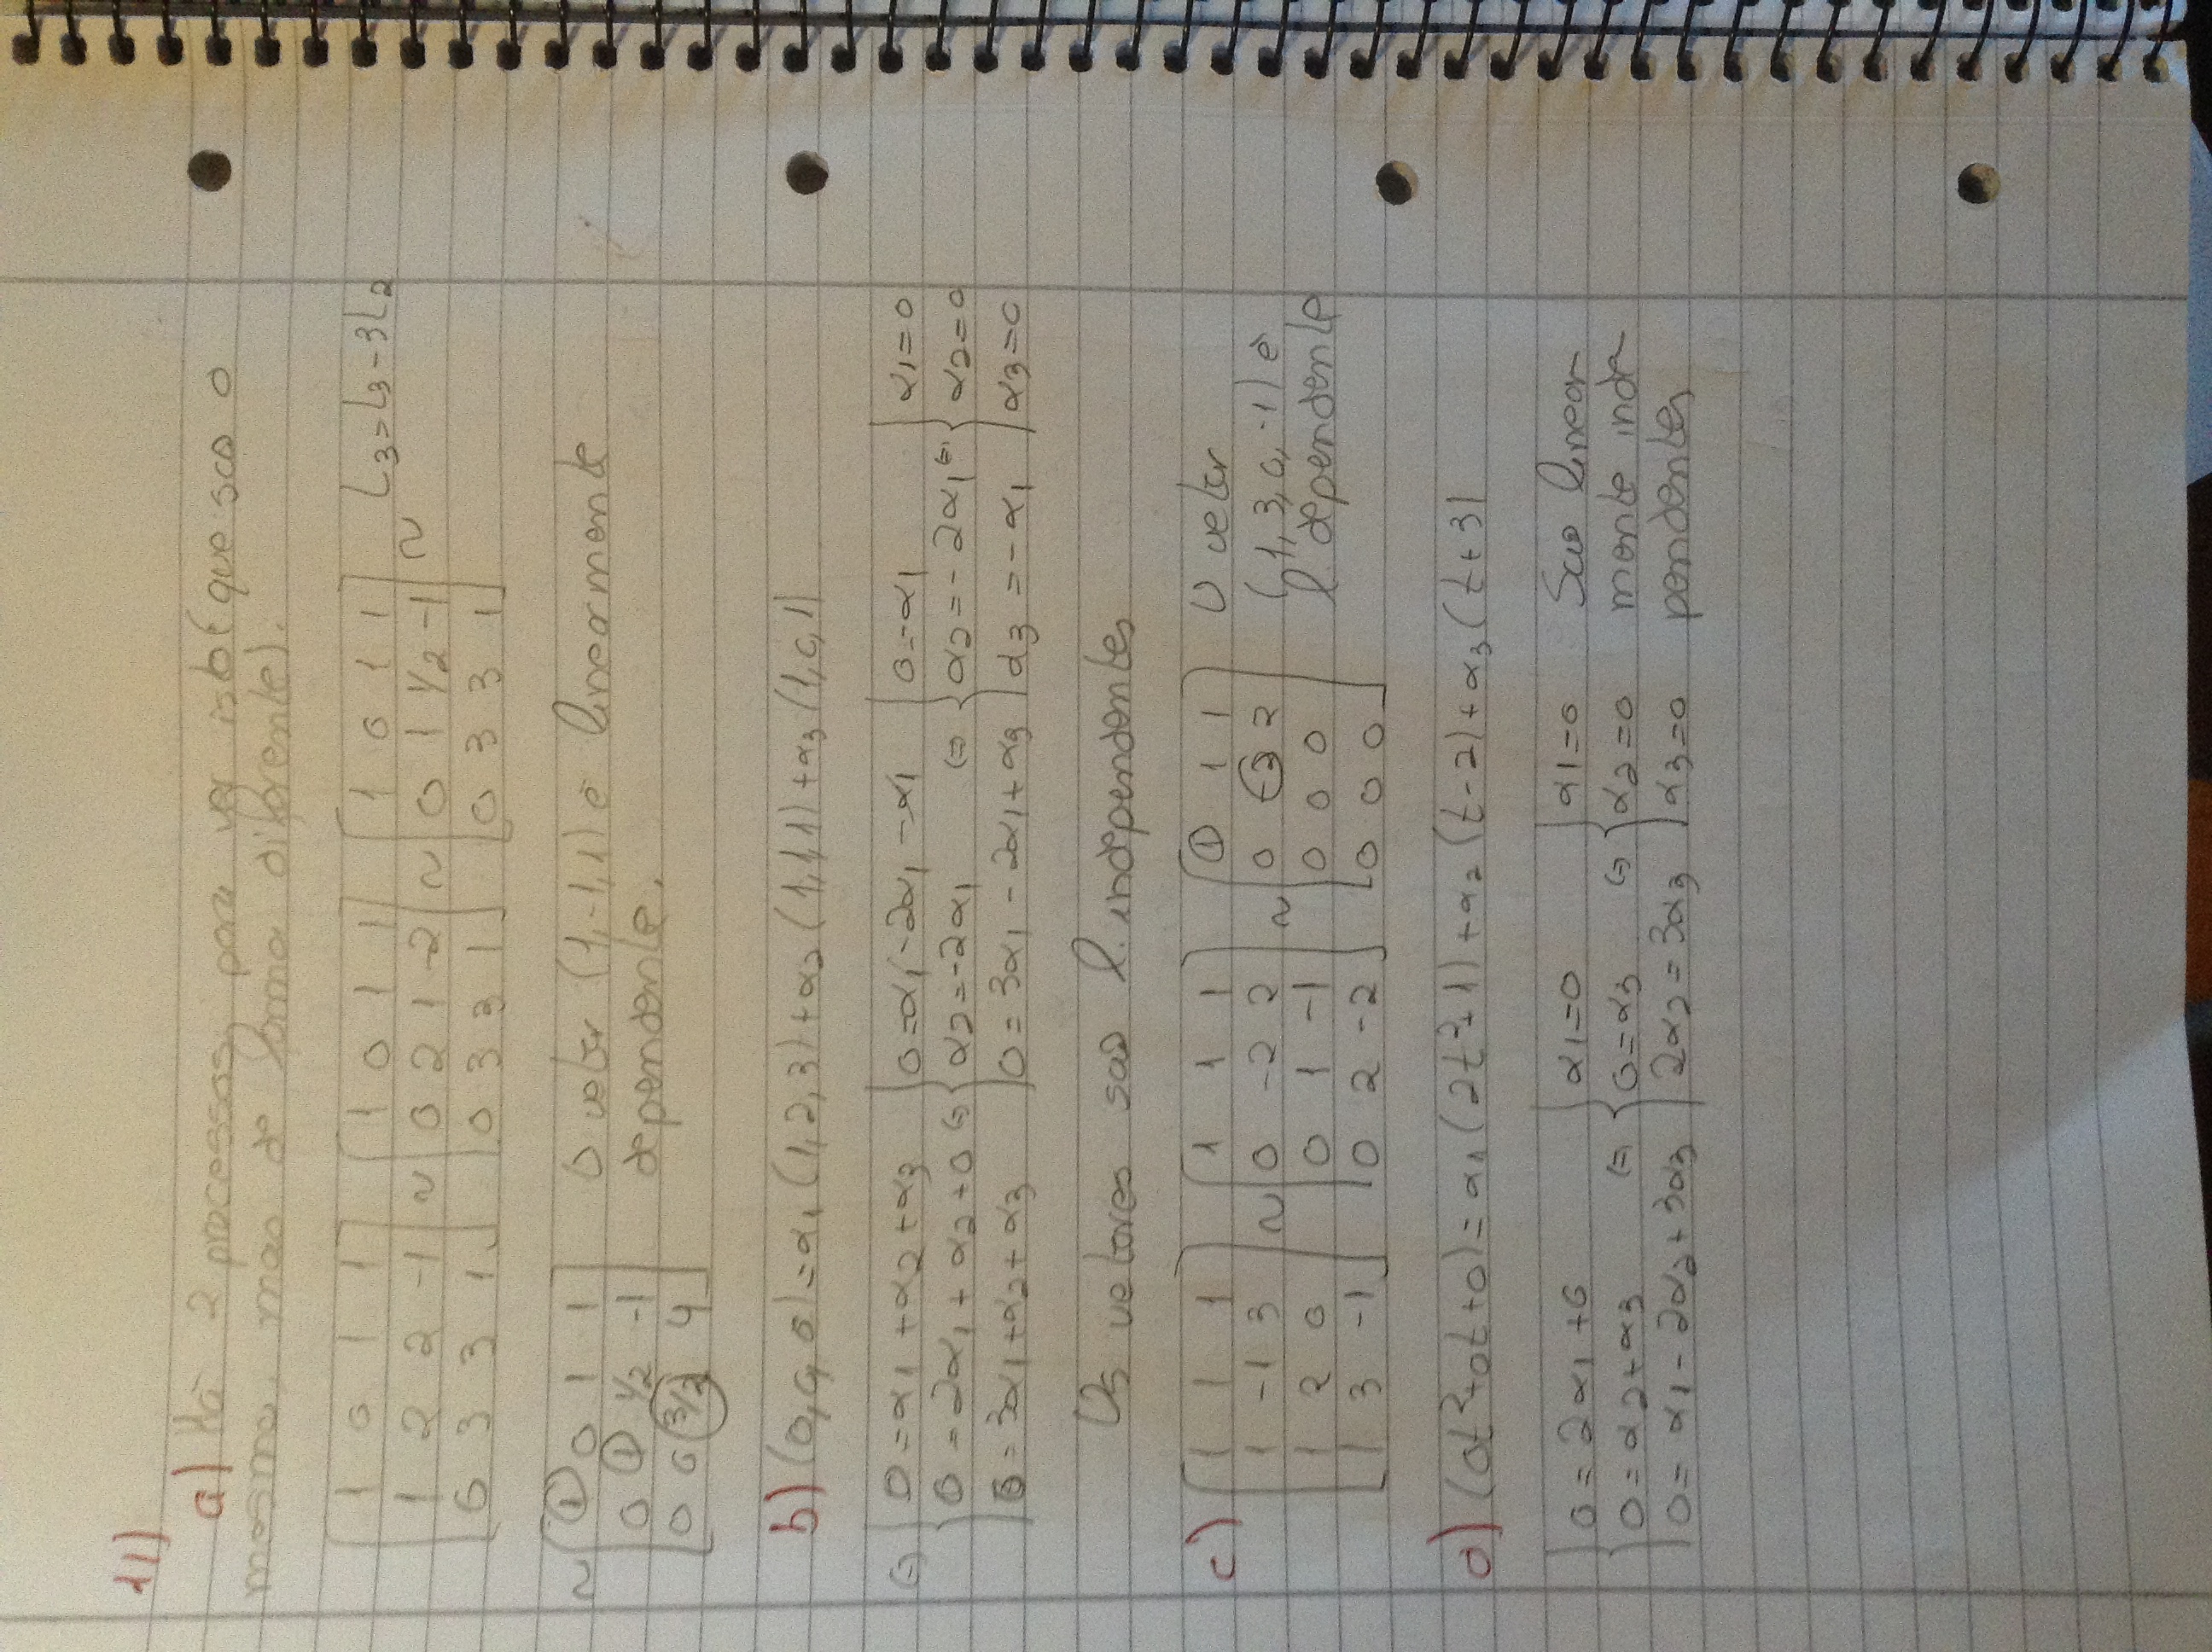 11)
a) Há 2 processos, para ver isto (que são o
mesmo, mas de forma diferente).
[1 0 1 1; 1 2 2 -1; 0 3 3 1] ~ [1 0 1 1; 0 2 1 -2; 0 3 3 1] ~ [1 0 1 1; 0 1 1/2 -1; 0 3 3 1] ~ L3=L3-3L2
~ [1 0 1 1; 0 1 1/2 -1; 0 0 3/2 4] O vetor (1,-1,1) é linearmente
dependente.
b) (0,0,0)=α1(1,2,3)+α2(1,1,1)+α3(1,0,1)
⇔ { 0=α1+α2+α3 { 0=α1-2α1-α1 { 0=-α1 { α1=0
0=2α1+α2+0 ⇔ α2=-2α1 ⇔ α2=-2α1 ⇔ α2=0
0=3α1+α2+α3 0=3α1-2α1+α3 α3=-α1 α3=0
Os vetores são l. independentes
c) [1 1 1; 1 -1 3; 1 2 0; 1 3 -1] ~ [1 1 1; 0 -2 2; 0 1 -1; 0 2 -2] ~ [1 1 1; 0 -2 2; 0 0 0; 0 0 0] O vetor
(1,3,0,-1) é
l. dependente
d) (0t²+0t+0)=α1(2t²+1)+α2(t-2)+α3(t+3)
{ 0=2α1+0 { α1=0 { α1=0 São linear
0=α2+α3 ⇔ 0=α3 ⇔ α2=0 mente inde
0=α1-2α2+3α3 2α2=3α3 α3=0 pendentes